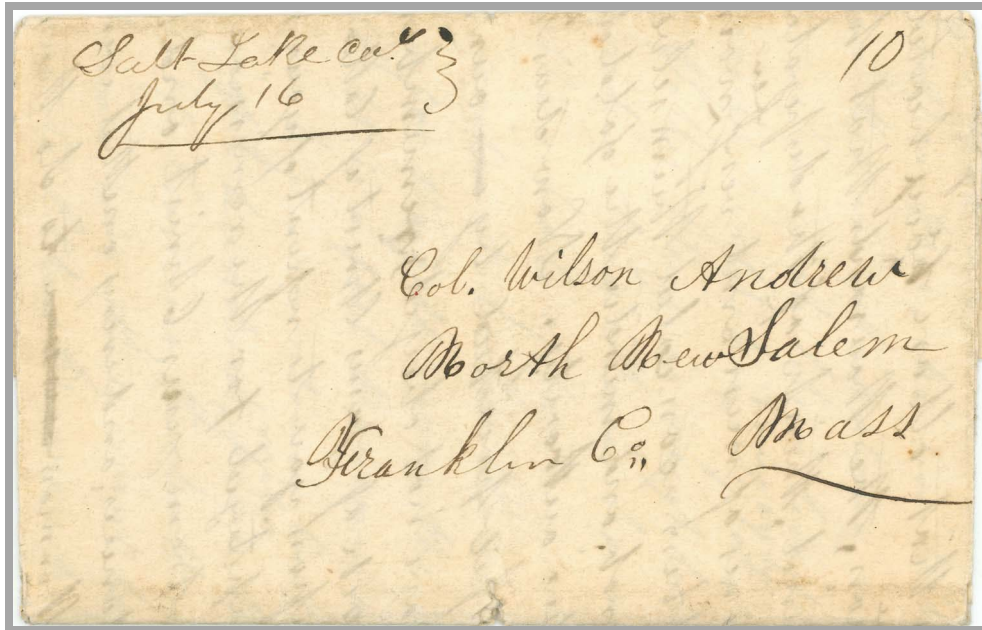 Salt Lake Cal.
July 16
10
Col. Wilson Andrew
North New Salem
Franklin Co,, Mass